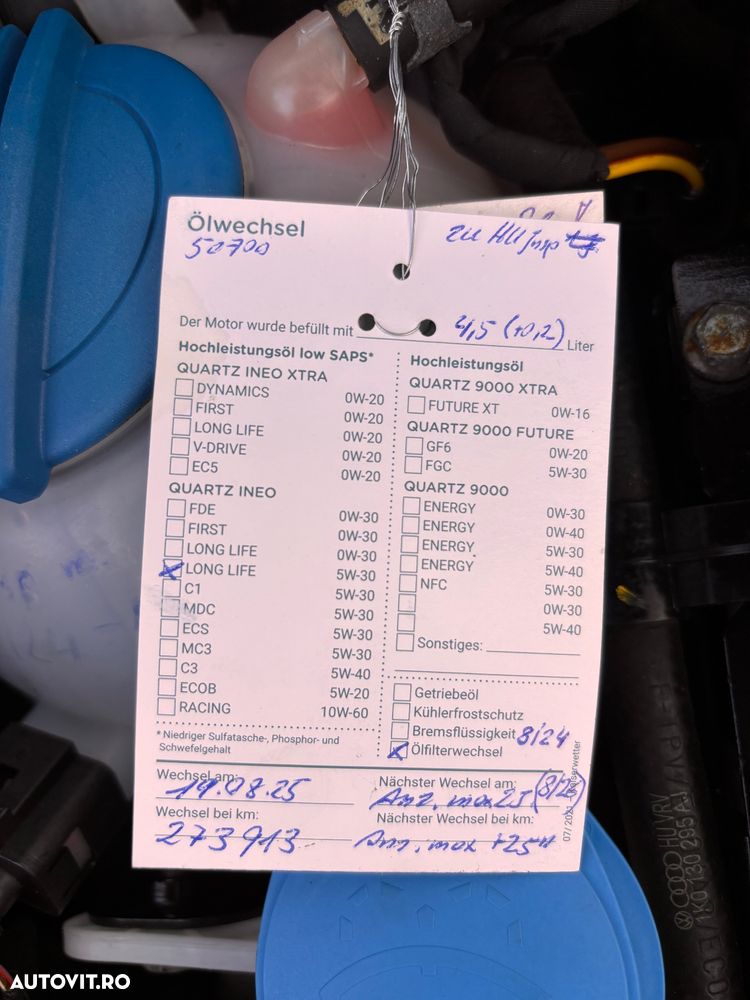 Ölwechsel
50700
zu HU Insp
Der Motor wurde befüllt mit 4,5 (+0,2) Liter
Hochleistungsöl low SAPS*
QUARTZ INEO XTRA
DYNAMICS 0W-20
FIRST 0W-20
LONG LIFE 0W-20
V-DRIVE 0W-20
EC5 0W-20
QUARTZ INEO
FDE 0W-30
FIRST 0W-30
LONG LIFE 0W-30
LONG LIFE 5W-30
C1 5W-30
MDC 5W-30
ECS 5W-30
MC3 5W-30
C3 5W-40
ECOB 5W-20
RACING 10W-60
* Niedriger Sulfatasche-, Phosphor- und
Schwefelgehalt
Hochleistungsöl
QUARTZ 9000 XTRA
FUTURE XT 0W-16
QUARTZ 9000 FUTURE
GF6 0W-20
FGC 5W-30
QUARTZ 9000
ENERGY 0W-30
ENERGY 0W-40
ENERGY 5W-30
ENERGY 5W-40
NFC 5W-30
0W-30
5W-40
Sonstiges:
Getriebeöl
Kühlerfrostschutz
Bremsflüssigkeit 8/24
Ölfilterwechsel
Wechsel am: 19.08.25
Nächster Wechsel am: Anz. max 2J (8/26)
Wechsel bei km: 273913
Nächster Wechsel bei km: Anz. max +25
07/2021
HUVRV
1K0 130 295 AJ
AUTOVIT.RO